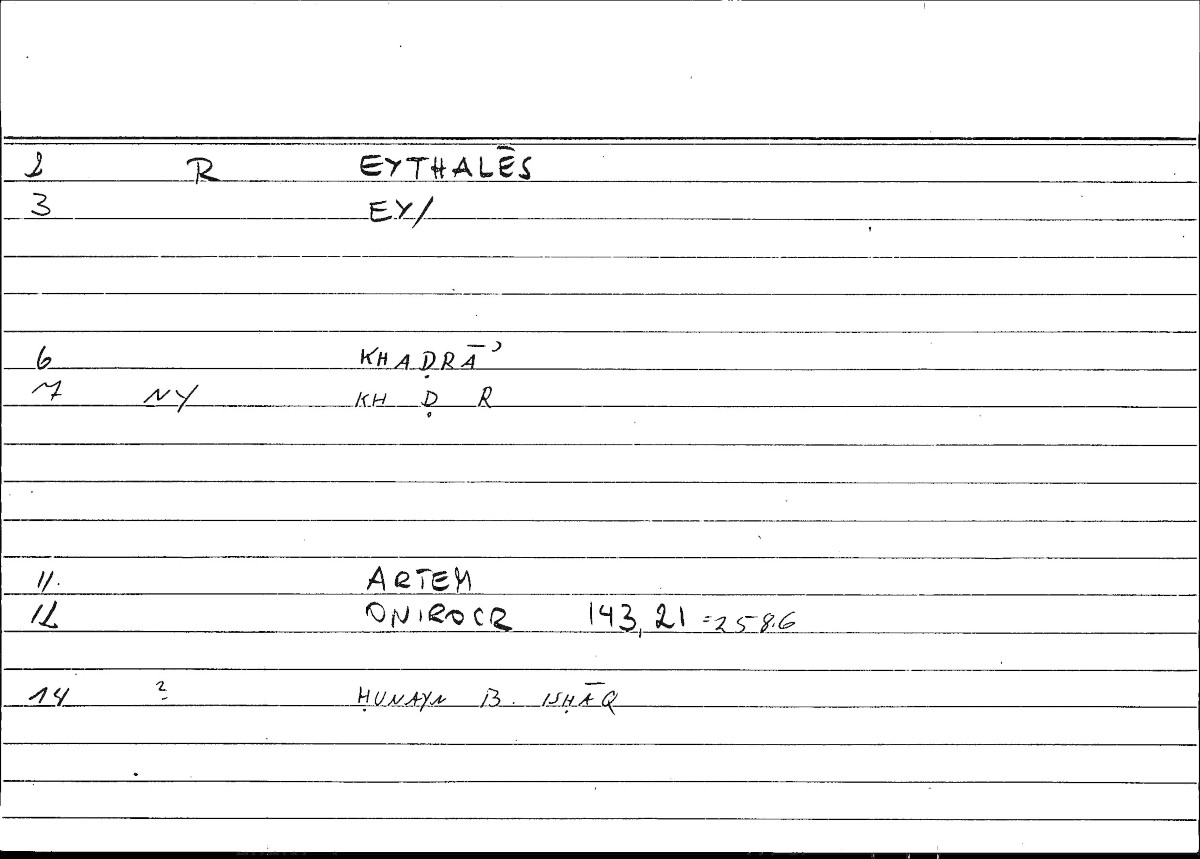 2 R EYTHALĒS
3 EY/
6 KHAḌRĀʾ
7 NY KH Ḍ R
11. ARTEM
12 ONIROCR 143,21 =258.6
14 2 ḤUNAYN B. ISḤĀQ